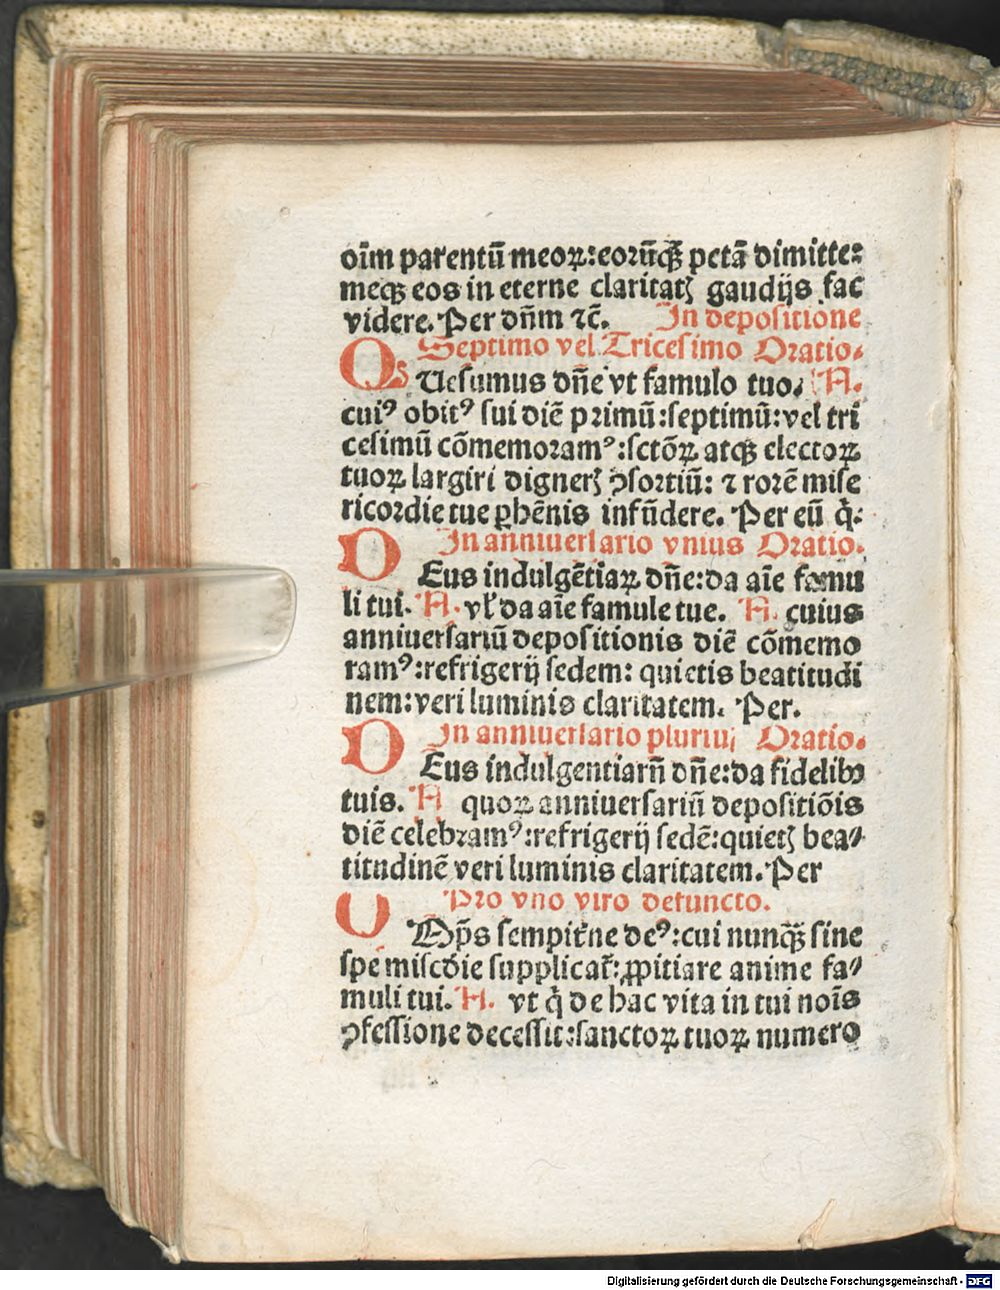 oīm parentū meoꝝ:eorūqꝫ pctā dimitte:
meqꝫ eos in eterne claritatꝭ gaudijs fac
videre. Per dn̄m ⁊c̄. In depositione
Septimo vel Tricesimo Oratio.
QS Uesumus dn̄e vt famulo tuo. N.
cuiꝰ obitꝰ sui diē primū:septimū:vel tri
cesimū cōmemoramꝰ:sctōꝝ atqꝫ electoꝝ
tuoꝝ largiri dignerꝭ ꝯsortiū: ⁊ rorē mise
ricordie tue ꝑhēnis infūdere. Per eū q̄:
In anniuersario vnius Oratio.
DEus indulgētiaꝝ dn̄e:da aīe famu
li tui. N. vl̄ da aīe famule tue. N. cuius
anniuersariū depositionis diē cōmemo
ramꝰ:refrigerij sedem: quietis beatitudi
nem:veri luminis claritatem. Per.
In anniuersario pluriuꝫ Oratio.
DEus indulgentiarū dn̄e:da fidelibꝰ
tuis. N quoꝝ anniuersariū depositiōis
diē celebramꝰ:refrigerij sedē:quietꝭ bea⸗
titudinē veri luminis claritatem. Per
Pro vno viro defuncto.
OMp̄s sempit̄ne deꝰ:cui nunqꝫ sine
spe miscd̄ie supplicat̄:ꝓpitiare anime fa⸗
muli tui. N. vt q̄ de hac vita in tui noīs
ꝯfessione decessit:sanctoꝝ tuoꝝ numero
Digitalisierung gefördert durch die Deutsche Forschungsgemeinschaft - DFG